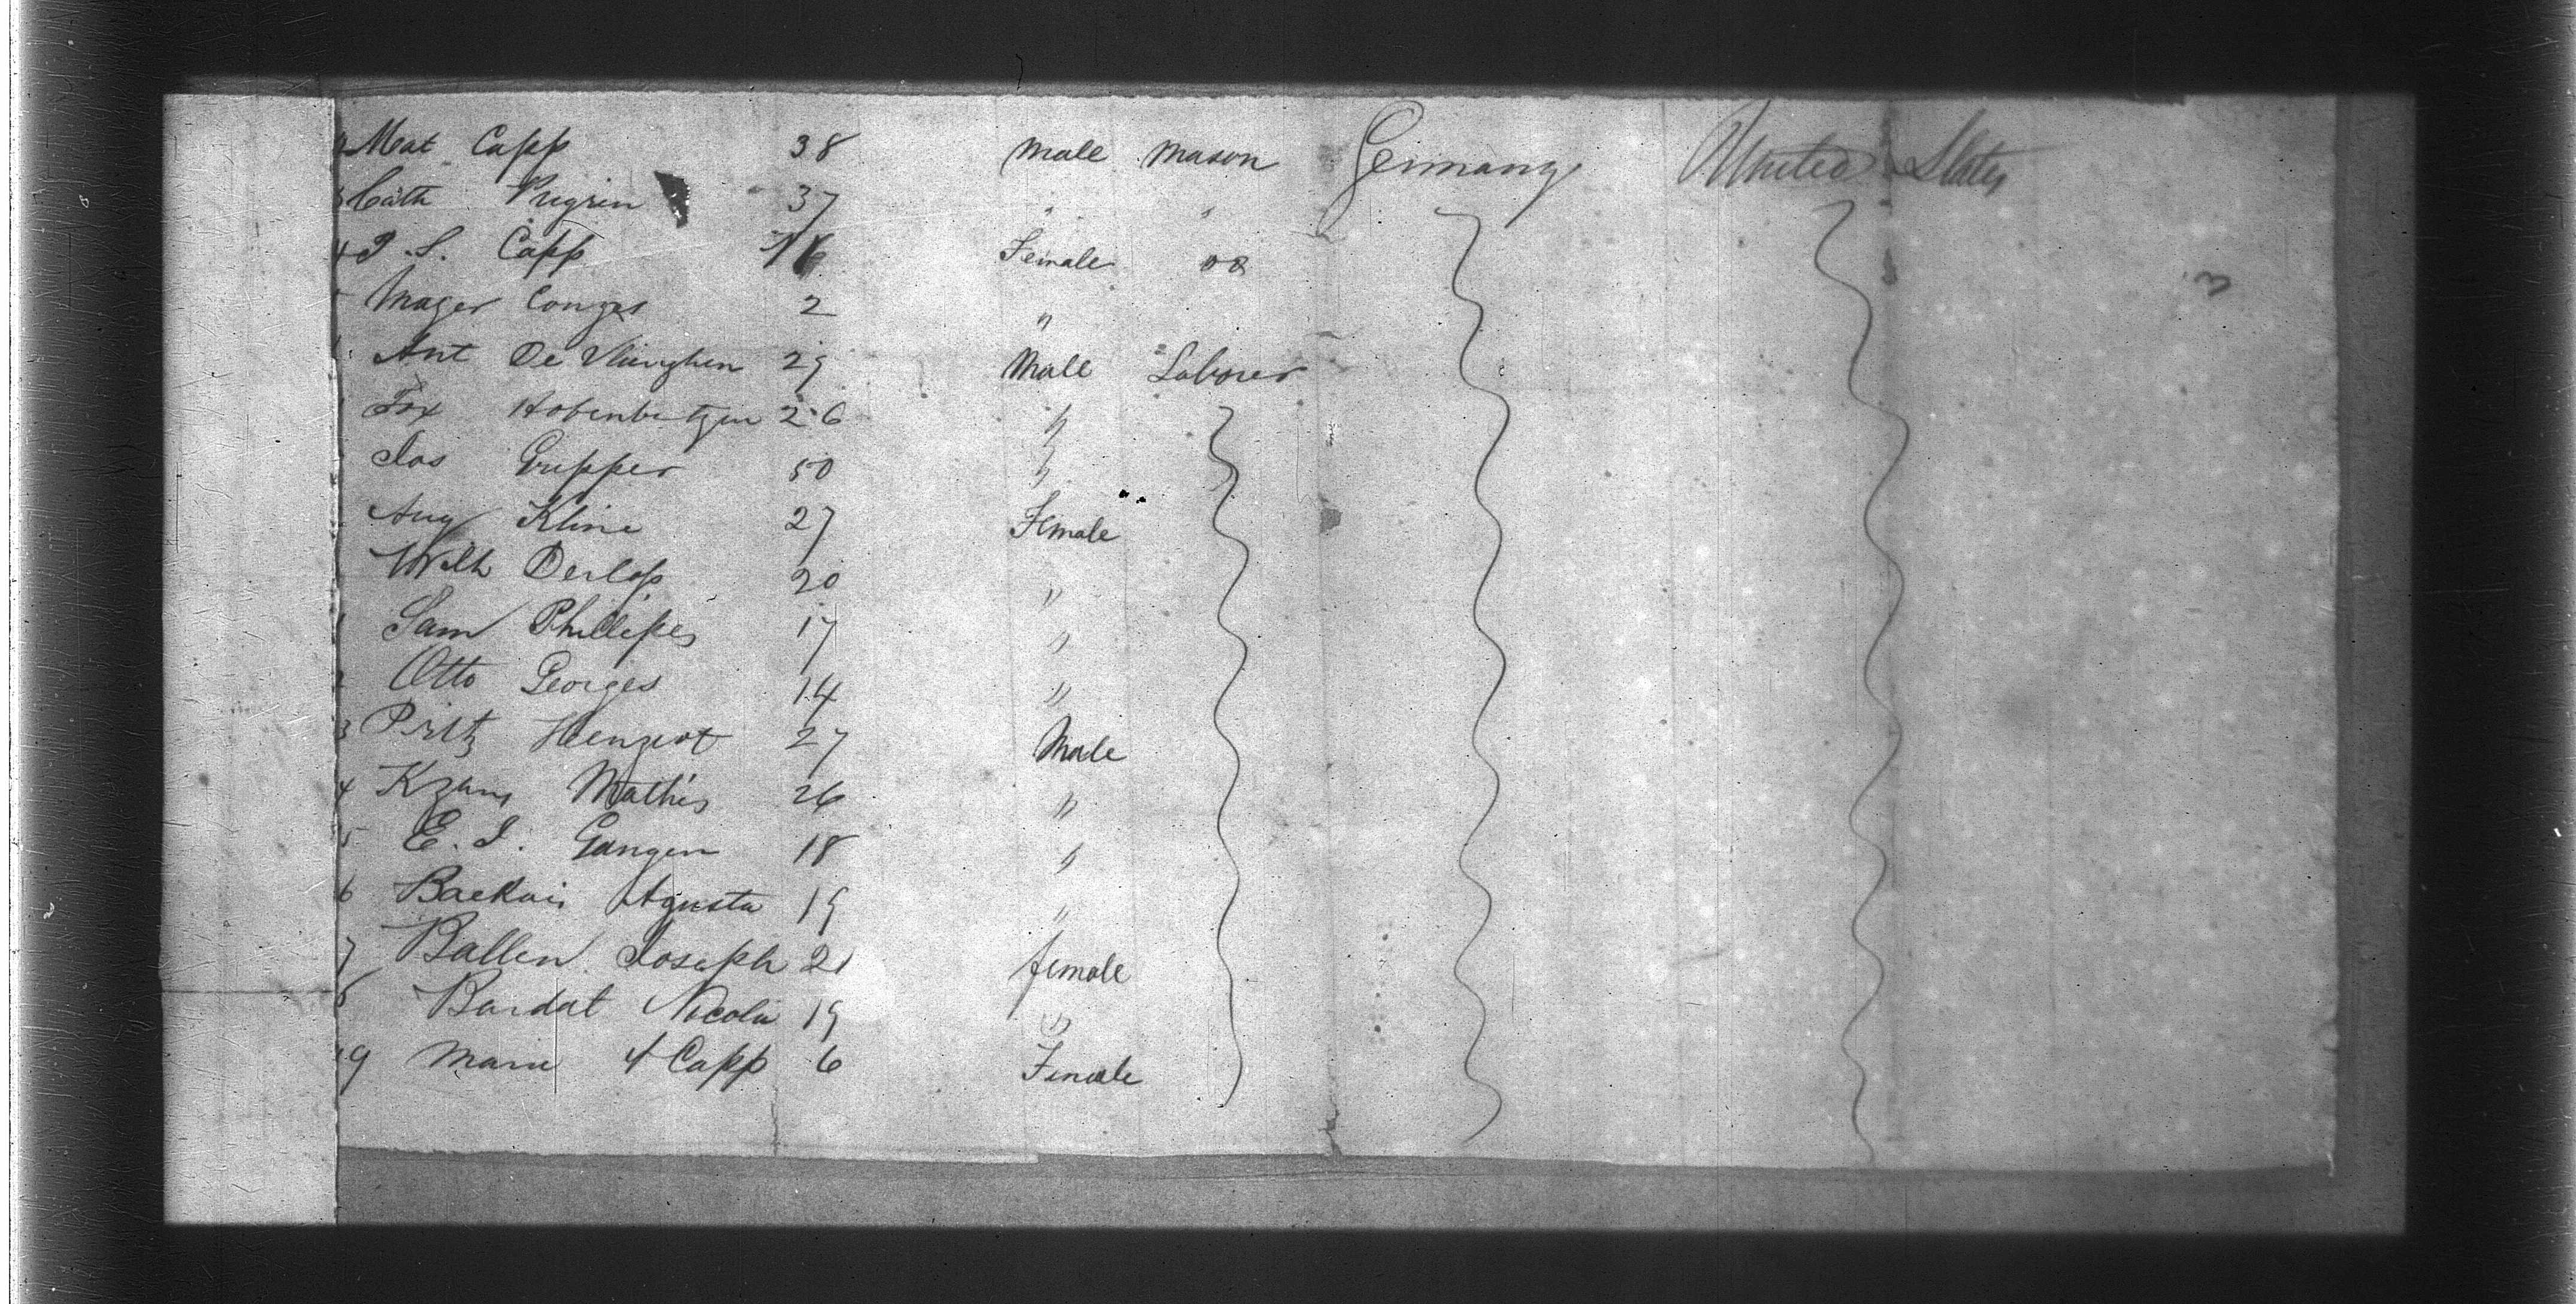 Mat Capp 38 male mason Germany United States
3 Cath Pugrin 37 " "
4 J. S. Capp 16 Female
5 Mager Conzes 2 "
Ant De 29 Male Laborer
Fox 26 "
Jos Gripper 50 "
Aug Kline 27 Female
Wilh Derlop 20 "
1 Sam Phillipes 17 "
2 Otto Georges 14 "
3 Pirtz Henzrot 27 Male
4 Kzans Mathis 26 "
5 E. J. Gangen 18 "
6 Backais Agusta 19 "
7 Ballen Joseph 21 female
8 Bardat Nicola 19 "
19 Marie Capp 6 Female
3